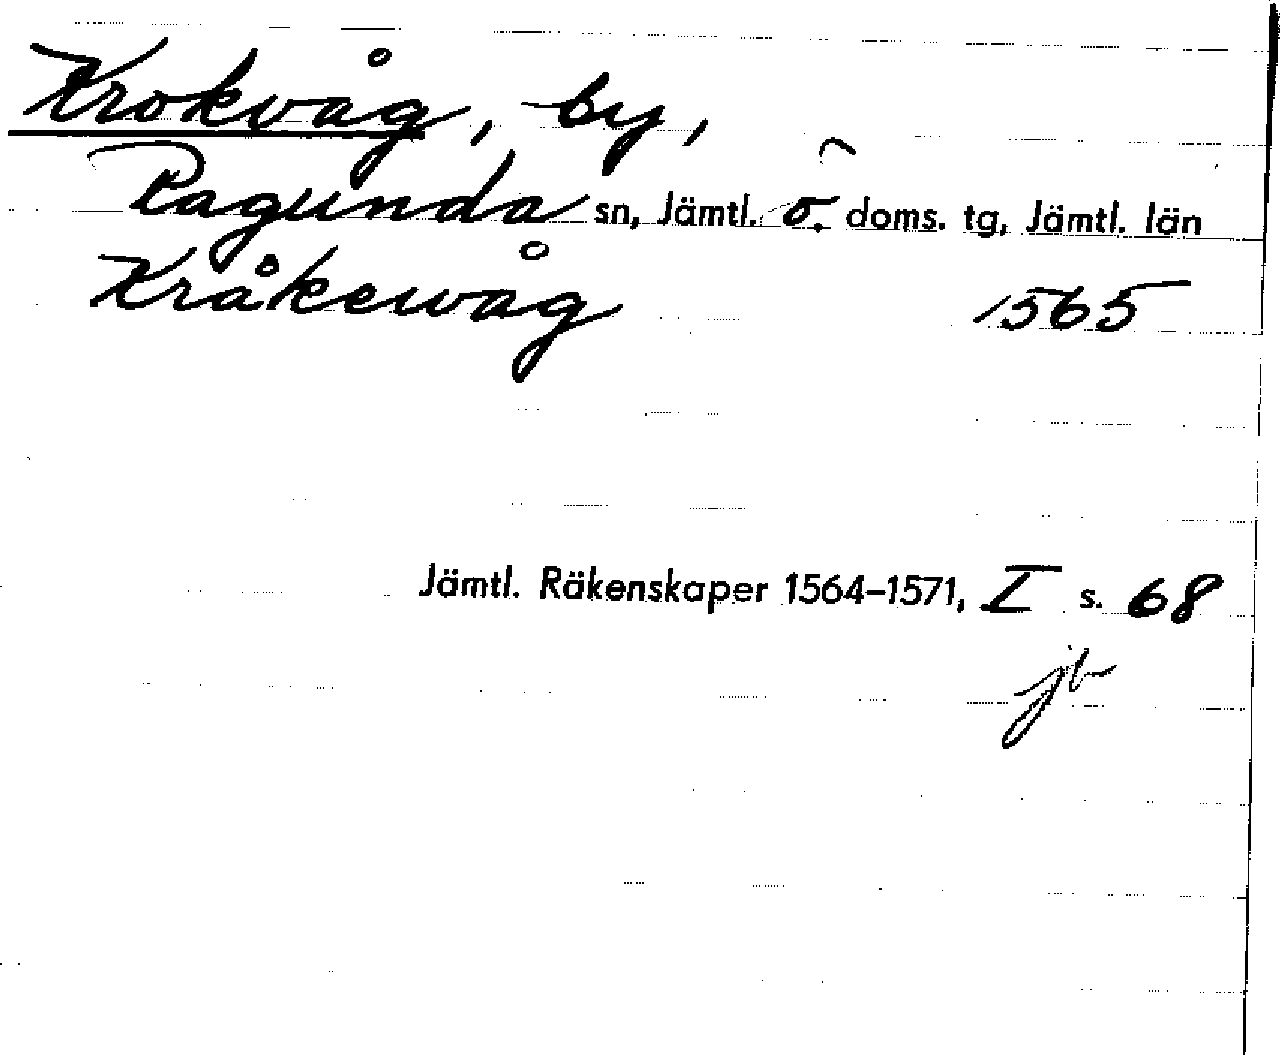 Krokvåg, by,
Ragunda sn, Jämtl. ö. doms. tg, Jämtl. län
Kråkewåg 1565
Jämtl. Räkenskaper 1564–1571, I s. 68
jb